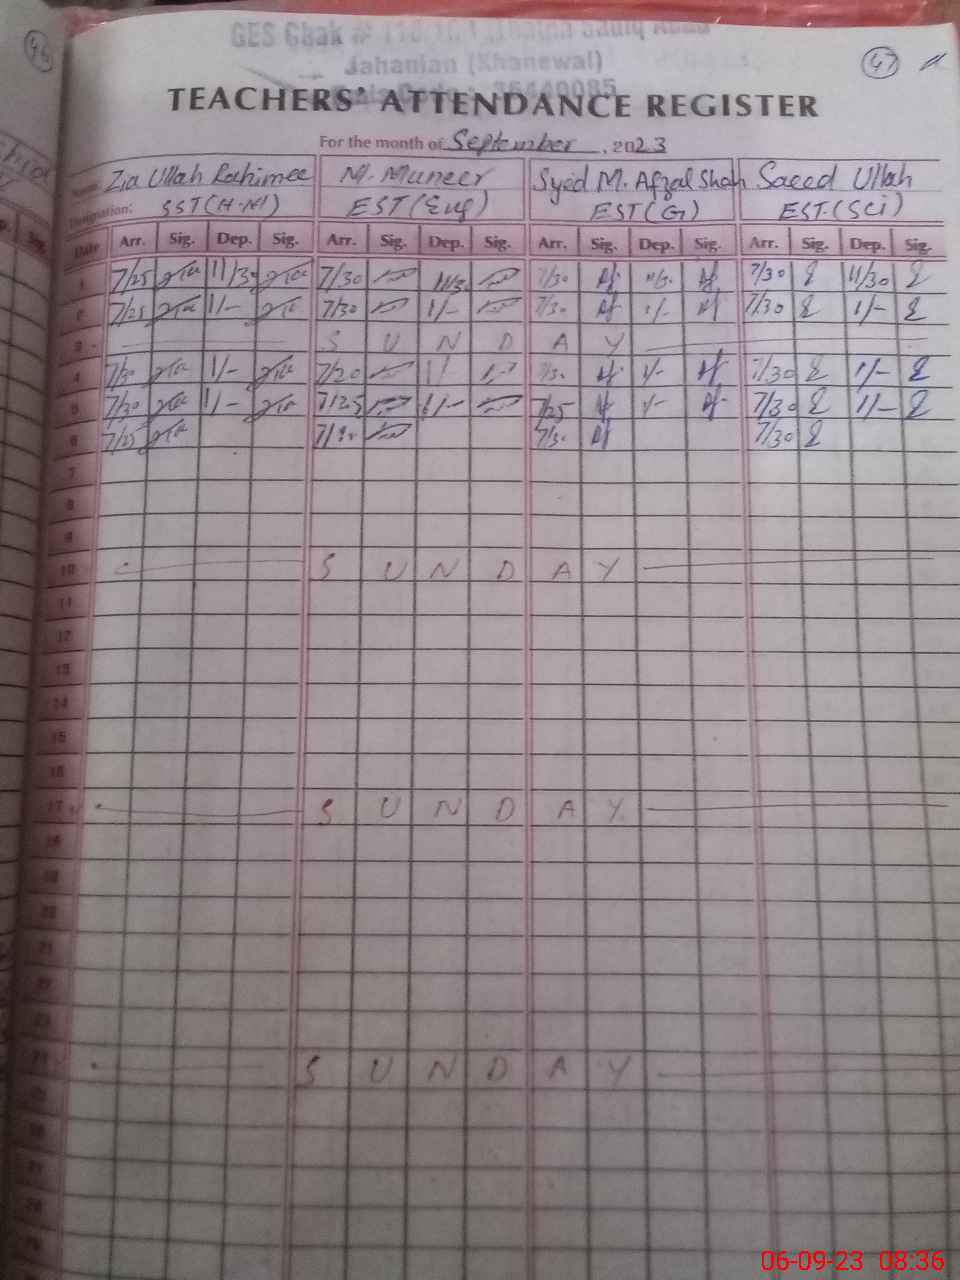 46
47
GES Chak #
Jahanian (Khanewal)
TEACHERS' ATTENDANCE REGISTER
For the month of September, 2023
Name: Zia Ullah Rahimee M. Muneer Syed M. Afzal Shah Saeed Ullah
Designation: SST(H-M) EST(Eng) EST(G) EST.(Sci)
Date Arr. Sig. Dep. Sig. Arr. Sig. Dep. Sig. Arr. Sig. Dep. Sig. Arr. Sig. Dep. Sig.
1 7/25 11/30 7/30 11/30 7/30 11/30 7/30 11/30
2 7/25 1/- 7/30 1/- 7/30 1/- 7/30 1/-
3 SUNDAY
4 7/30 1/- 7/20 1/ 7/30 1/- 7/30 1/-
5 7/30 1/- 7/25 1/- 7/25 1/- 7/30 1/-
6 7/25 7/30 7/30
7
8
9
10 SUNDAY
11
12
13
14
15
16
17 SUNDAY
18
19
20
21
22
23
24 SUNDAY
25
26
27
28
29
06-09-23 08:36